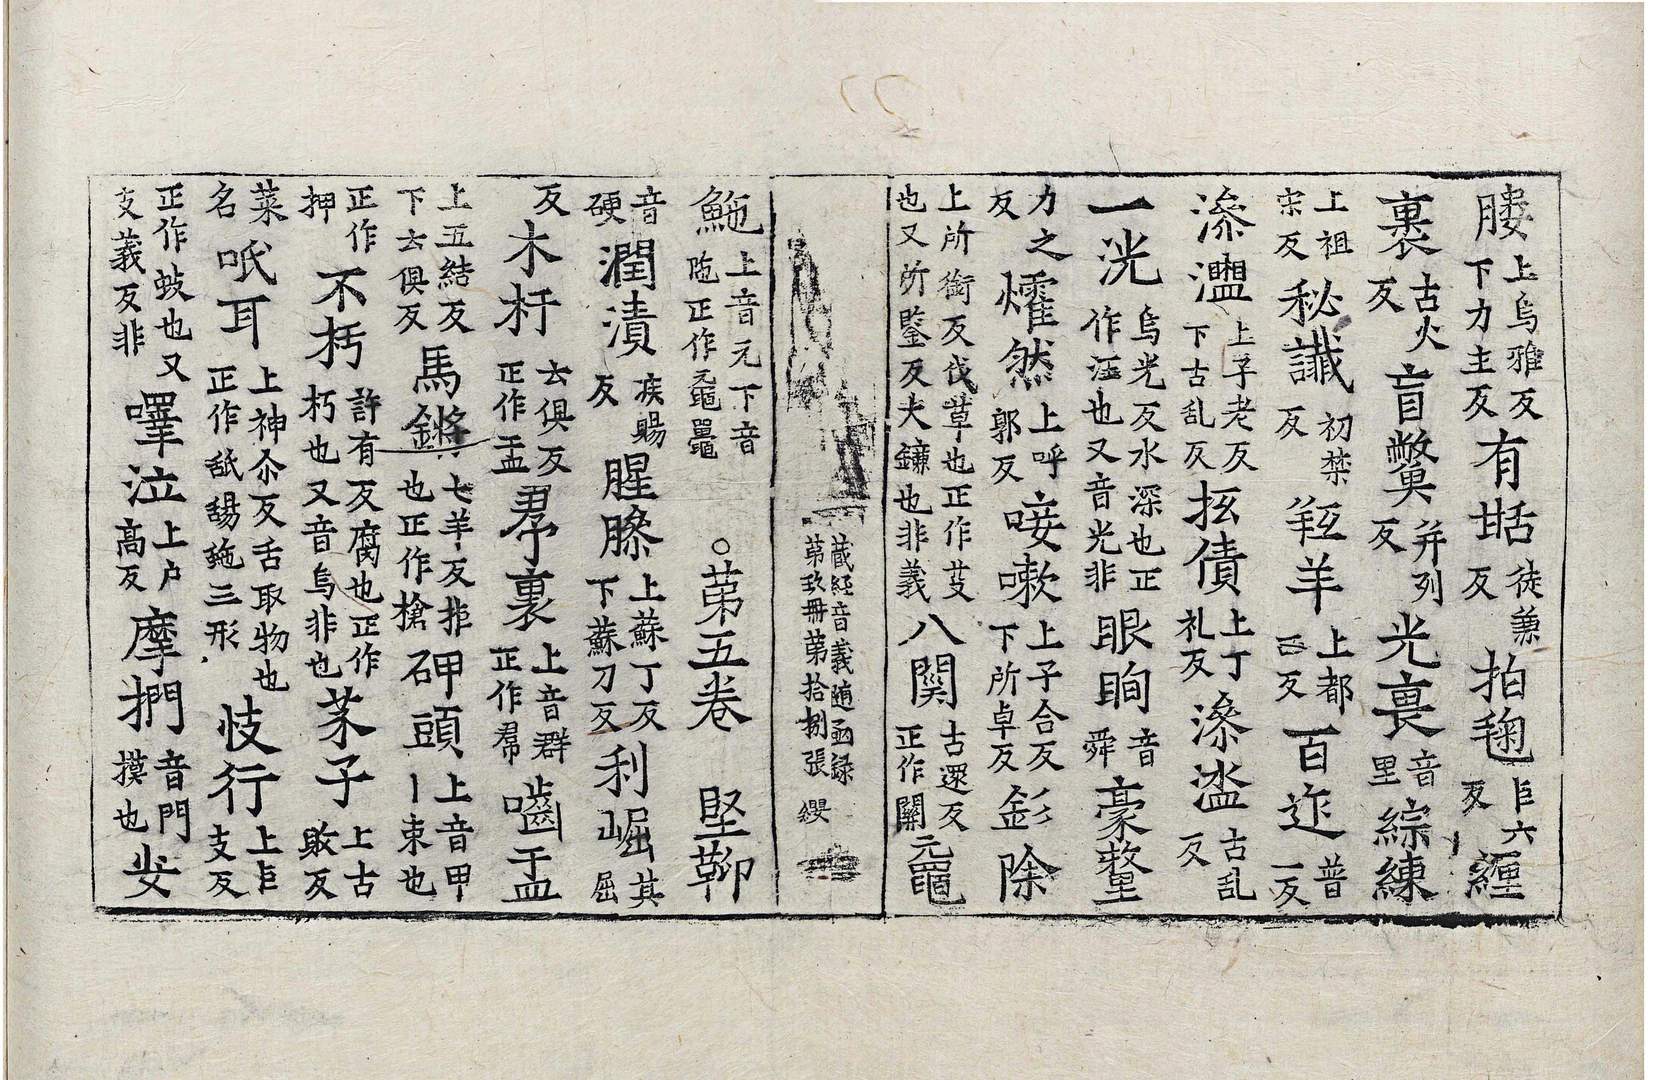 䏔上烏雅反下力主反有甛徒兼反拍毱巨六反纏
裹古火反盲鷩并列反光裛音里綜練
上祖宋反秘讖初禁反羥羊上都𠃔反百迮普一反
㴾灃上子老反下古乱反抎債上丁礼反㴾盗古乱反
一洸烏光反水深也正作汪也又音光非眼眴音舜豪整
力之反㸌然上呼郭反唼嗽上子合反下所卓反釤除
上所銜反伐草也正作芟也又所鑒反大鎌也非義八関古還反正作關元鼂
藏經音義随函録第玖冊第拾捌張 纓
鮠上音元下音陁正作黿鼉 ○第五卷 堅鞕
音硬潤漬疾賜反腥䐿上蘇丁反下蘇刀反利崛其屈
反木杅云俱反正作盂帬裏上音群正作裙嚙盂
上五結反下云俱反馬鏘七羊反拒也正作槍砰頭上音甲丨束也
正作押不朽許有反腐也正作朽也又音烏非也茅子上古敢反
菜名呧耳上神尒反舌取物也正作舐䑛䑛三形歧行上巨支反
正作蚑也又支義反非嘷泣上户高反摩捫音門摸也歩